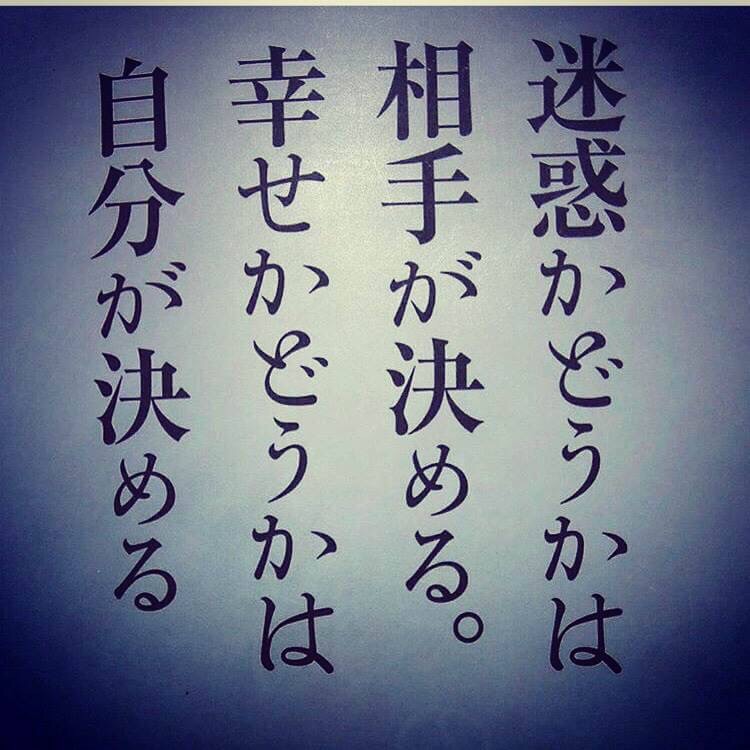 迷惑かどうかは
相手が決める。
幸せかどうかは
自分が決める